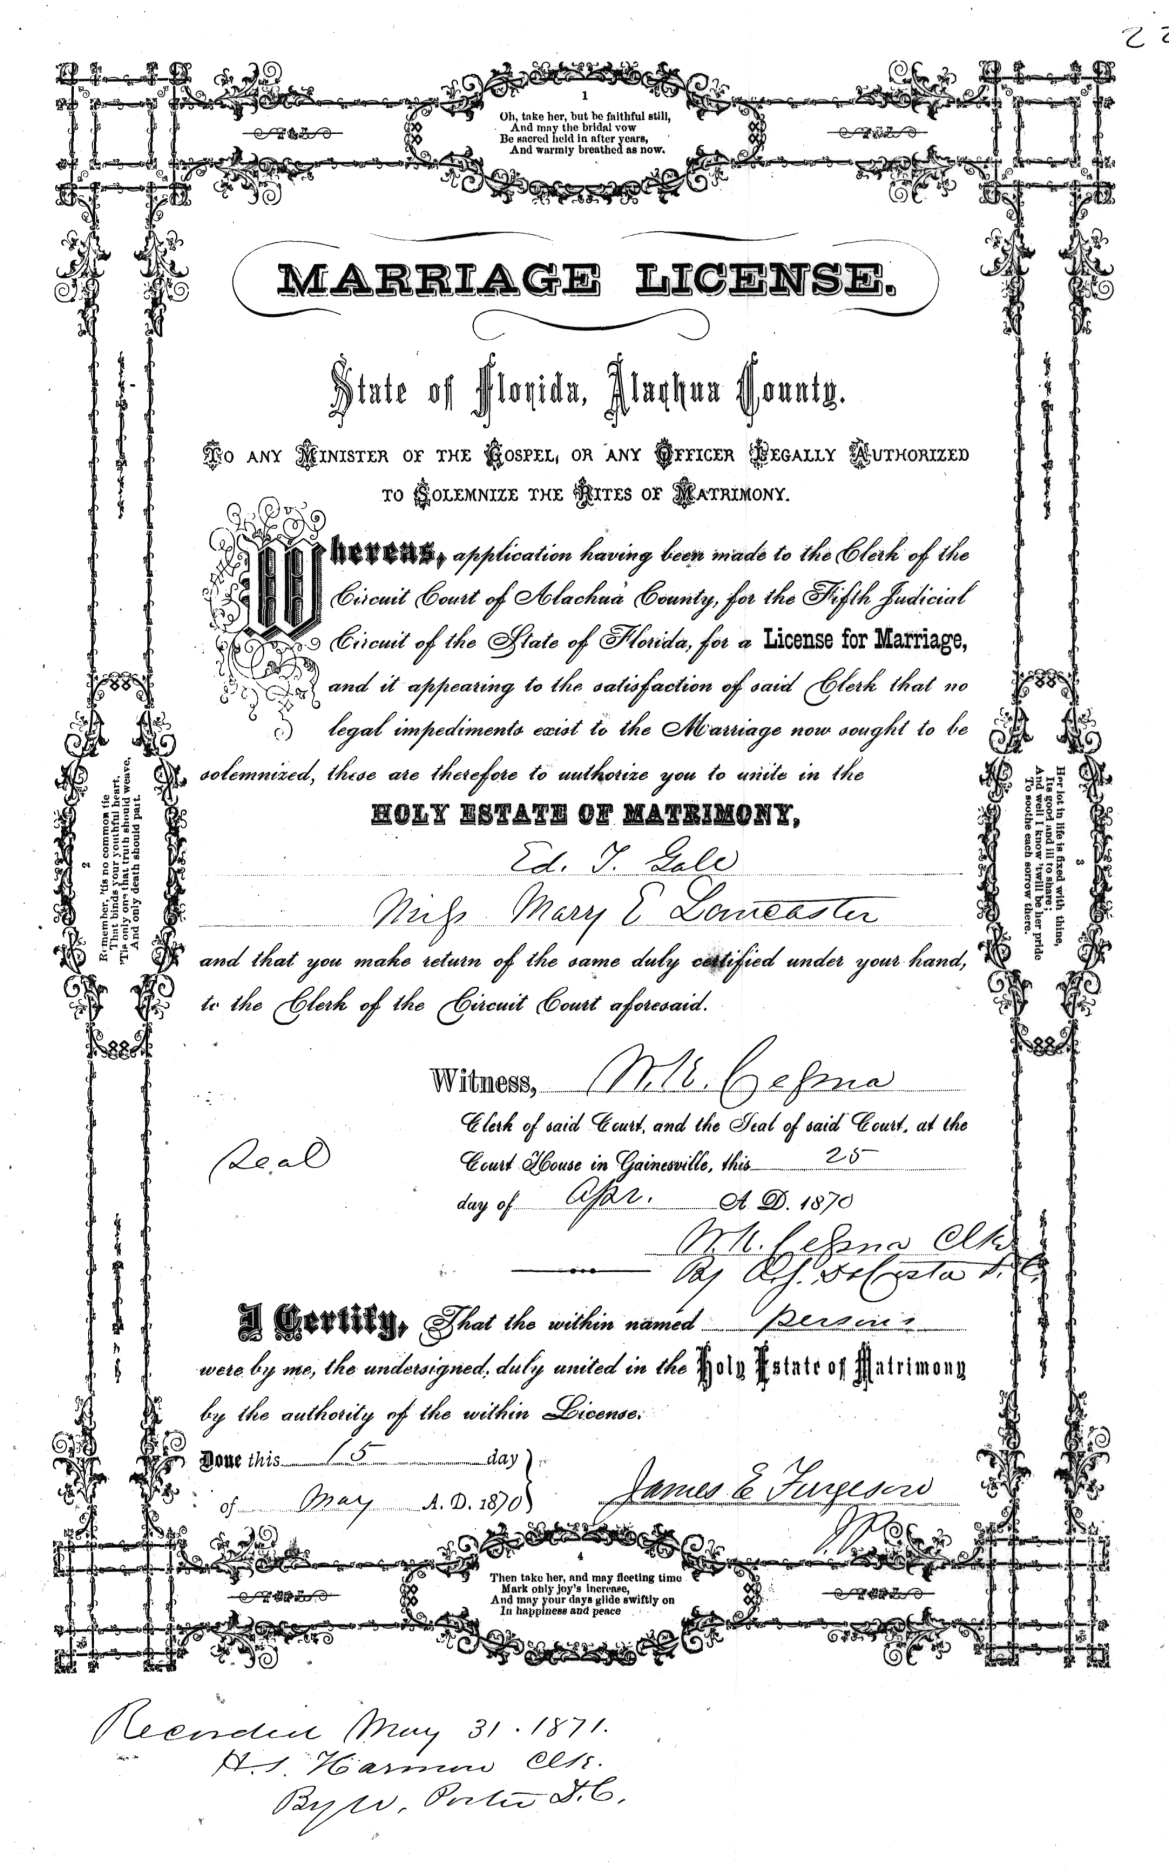 22
1
Oh, take her, but be faithful still,
And may the bridal vow
Be sacred held in after years,
And warmly breathed as now.
MARRIAGE LICENSE.
State of Florida, Alachua County.
TO ANY MINISTER OF THE GOSPEL, OR ANY OFFICER LEGALLY AUTHORIZED
TO SOLEMNIZE THE RITES OF MATRIMONY.
Whereas, application having been made to the Clerk of the
Circuit Court of Alachua County, for the Fifth Judicial
Circuit of the State of Florida, for a License for Marriage,
and it appearing to the satisfaction of said Clerk that no
legal impediments exist to the Marriage now sought to be
solemnized, these are therefore to authorize you to unite in the
HOLY ESTATE OF MATRIMONY,
Ed. T. Gale
Miss Mary E Lancaster
and that you make return of the same duly certified under your hand,
to the Clerk of the Circuit Court aforesaid.
2
Remember, 'tis no common tie
That binds your youthful heart,
'Tis only one that truth should weave,
And only death should part.
3
Her lot in life is fixed with thine,
Its good and ill to share;
And well I know 'twill be her pride
To soothe each sorrow there.
Witness, W. K. Cessna
Clerk of said Court, and the Seal of said Court, at the
Seal
Court House in Gainesville, this 25
day of Apr. A. D. 1870
W. K. Cessna Clk
By A. J. DaCosta D. C.
I Certify, That the within named persons
were by me, the undersigned, duly united in the Holy Estate of Matrimony
by the authority of the within License.
Done this 15 day
of May A. D. 1870
James E Furgeson
JP
4
Then take her, and may fleeting time
Mark only joy's increase,
And may your days glide swiftly on
In happiness and peace
Recorded May 31. 1871.
H. S. Harmon Clk.
By W. Porter D. C.